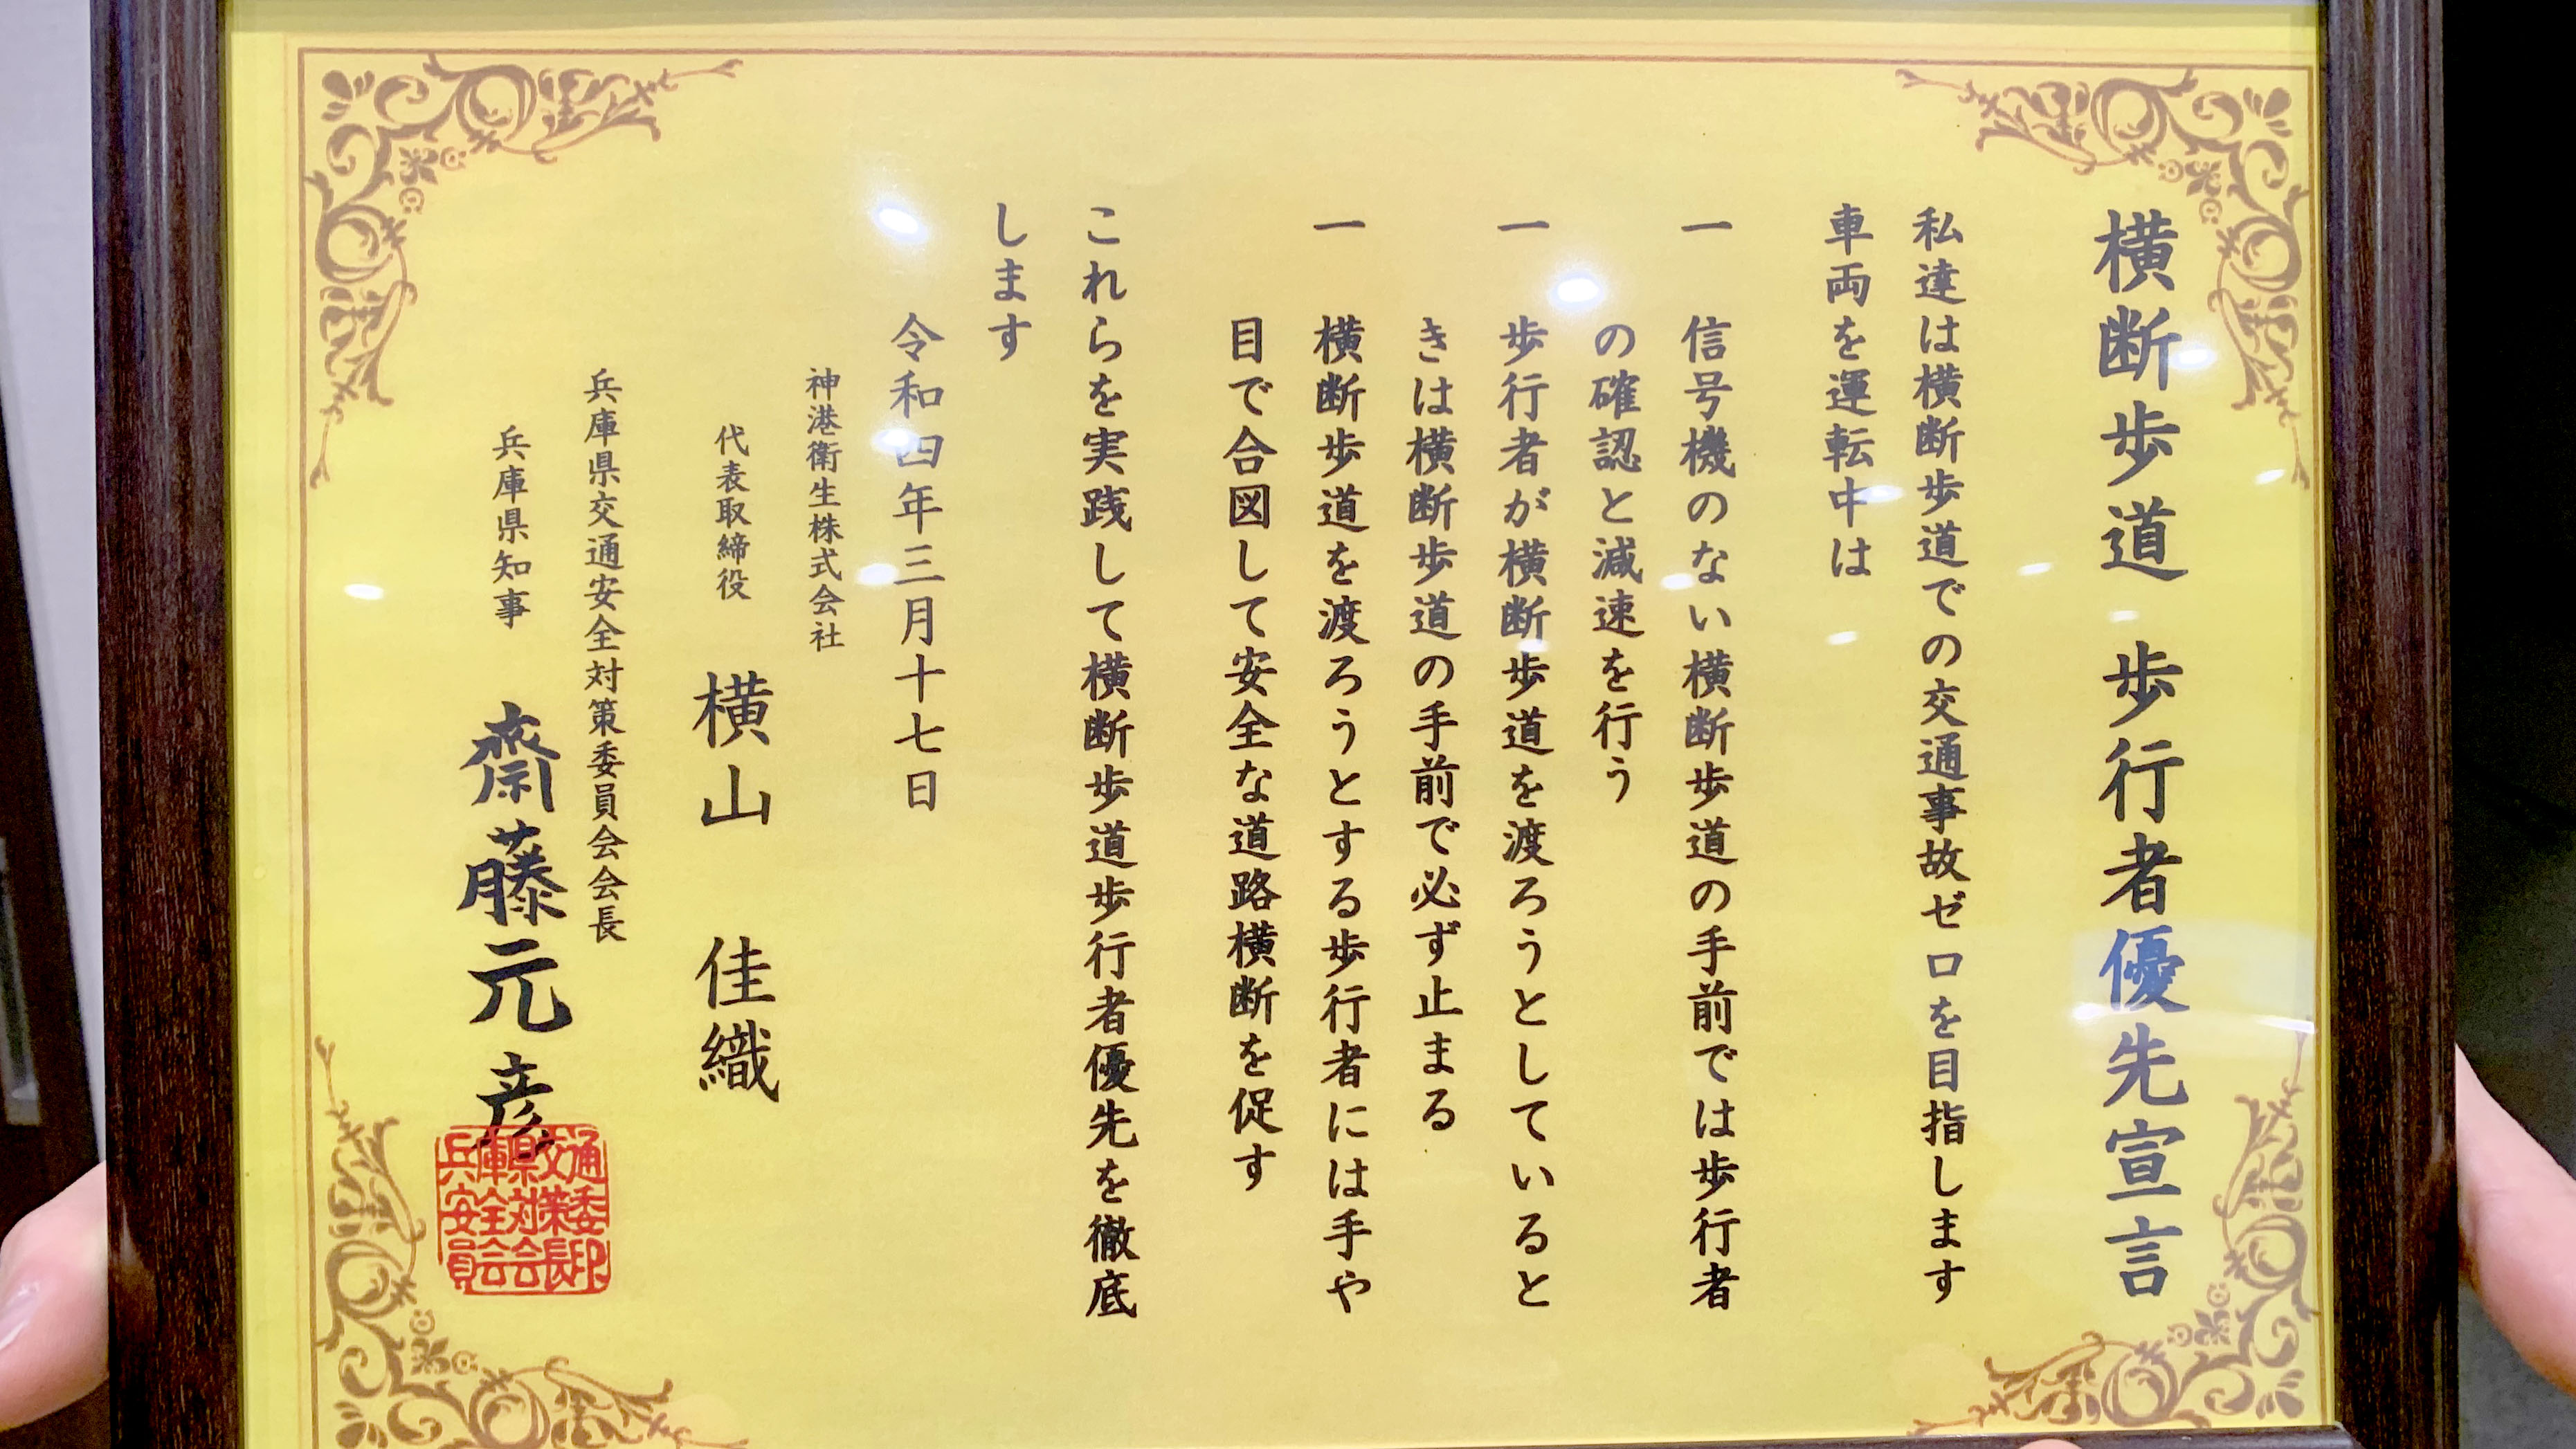 横断歩道 歩行者優先宣言
私達は横断歩道での交通事故ゼロを目指します
車両を運転中は
一 信号機のない横断歩道の手前では歩行者
の確認と減速を行う
一 歩行者が横断歩道を渡ろうとしていると
きは横断歩道の手前で必ず止まる
一 横断歩道を渡ろうとする歩行者には手や
目で合図して安全な道路横断を促す
これらを実践して横断歩道歩行者優先を徹底
します
令和四年三月十七日
神港衛生株式会社
代表取締役 横山 佳織
兵庫県交通安全対策委員会会長
兵庫県知事 齋藤元彦
兵庫県交通
安全対策委
員会会長印